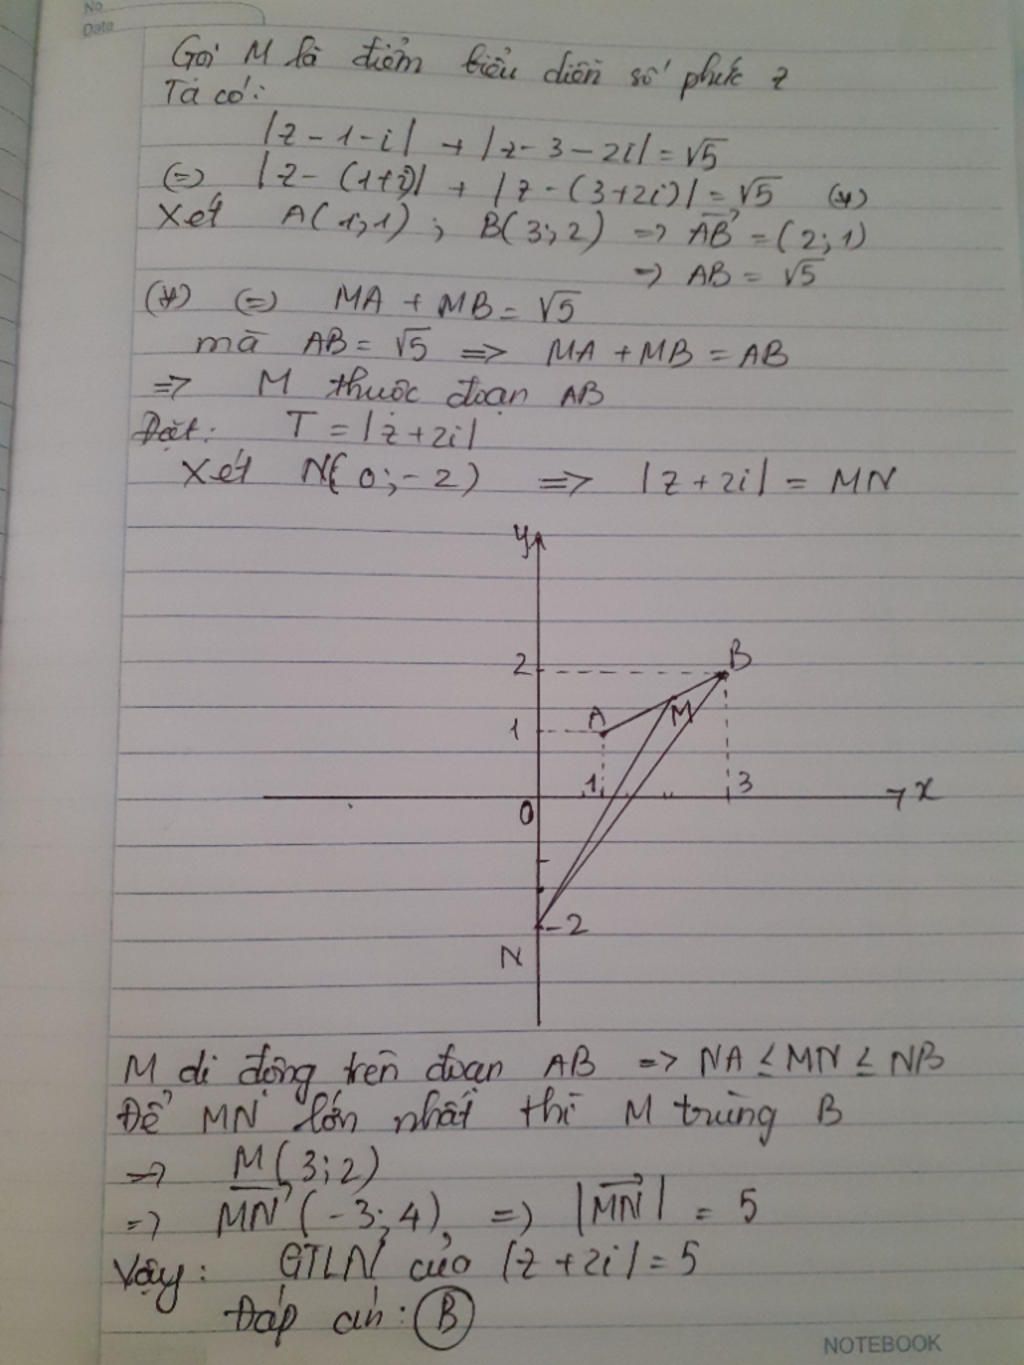 No
Date
Gọi M là điểm biểu diễn số phức z
Ta có:
|z - 1 - i| + |z - 3 - 2i| = √5
(=) |z - (1+i)| + |z - (3+2i)| = √5 (*)
Xét A(1;1) ; B(3;2) => AB = (2;1)
=> AB = √5
(*) (=) MA + MB = √5
mà AB = √5 => MA + MB = AB
=> M thuộc đoạn AB
Đặt: T = |z + 2i|
Xét N(0;-2) => |z + 2i| = MN
y
2
B
A
M
1
1
3
x
0
-2
N
M di động trên đoạn AB => NA ≤ MN ≤ NB
Để MN lớn nhất thì M trùng B
=> M(3;2)
=> MN (-3;4), => |MN| = 5
Vậy: GTLN của |z + 2i| = 5
Đáp án: B
NOTEBOOK